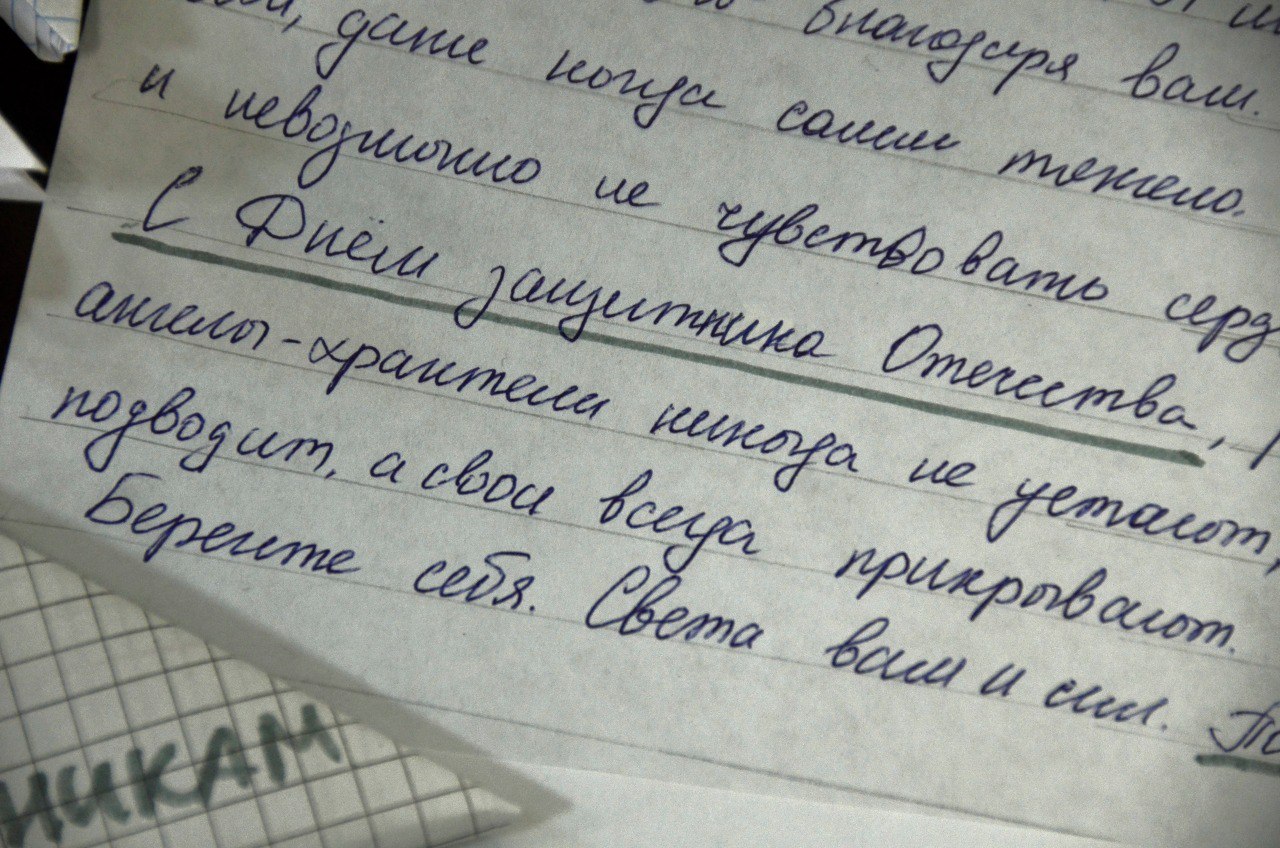 благодаря вам.
даже когда самим тяжело.
и невозможно не чувствовать серд
С Днём защитника Отечества,
ангелы-хранители никогда не устают,
подводит, а свои всегда прикрывают.
Берегите себя. Света вам и сил. По
НИКАМ